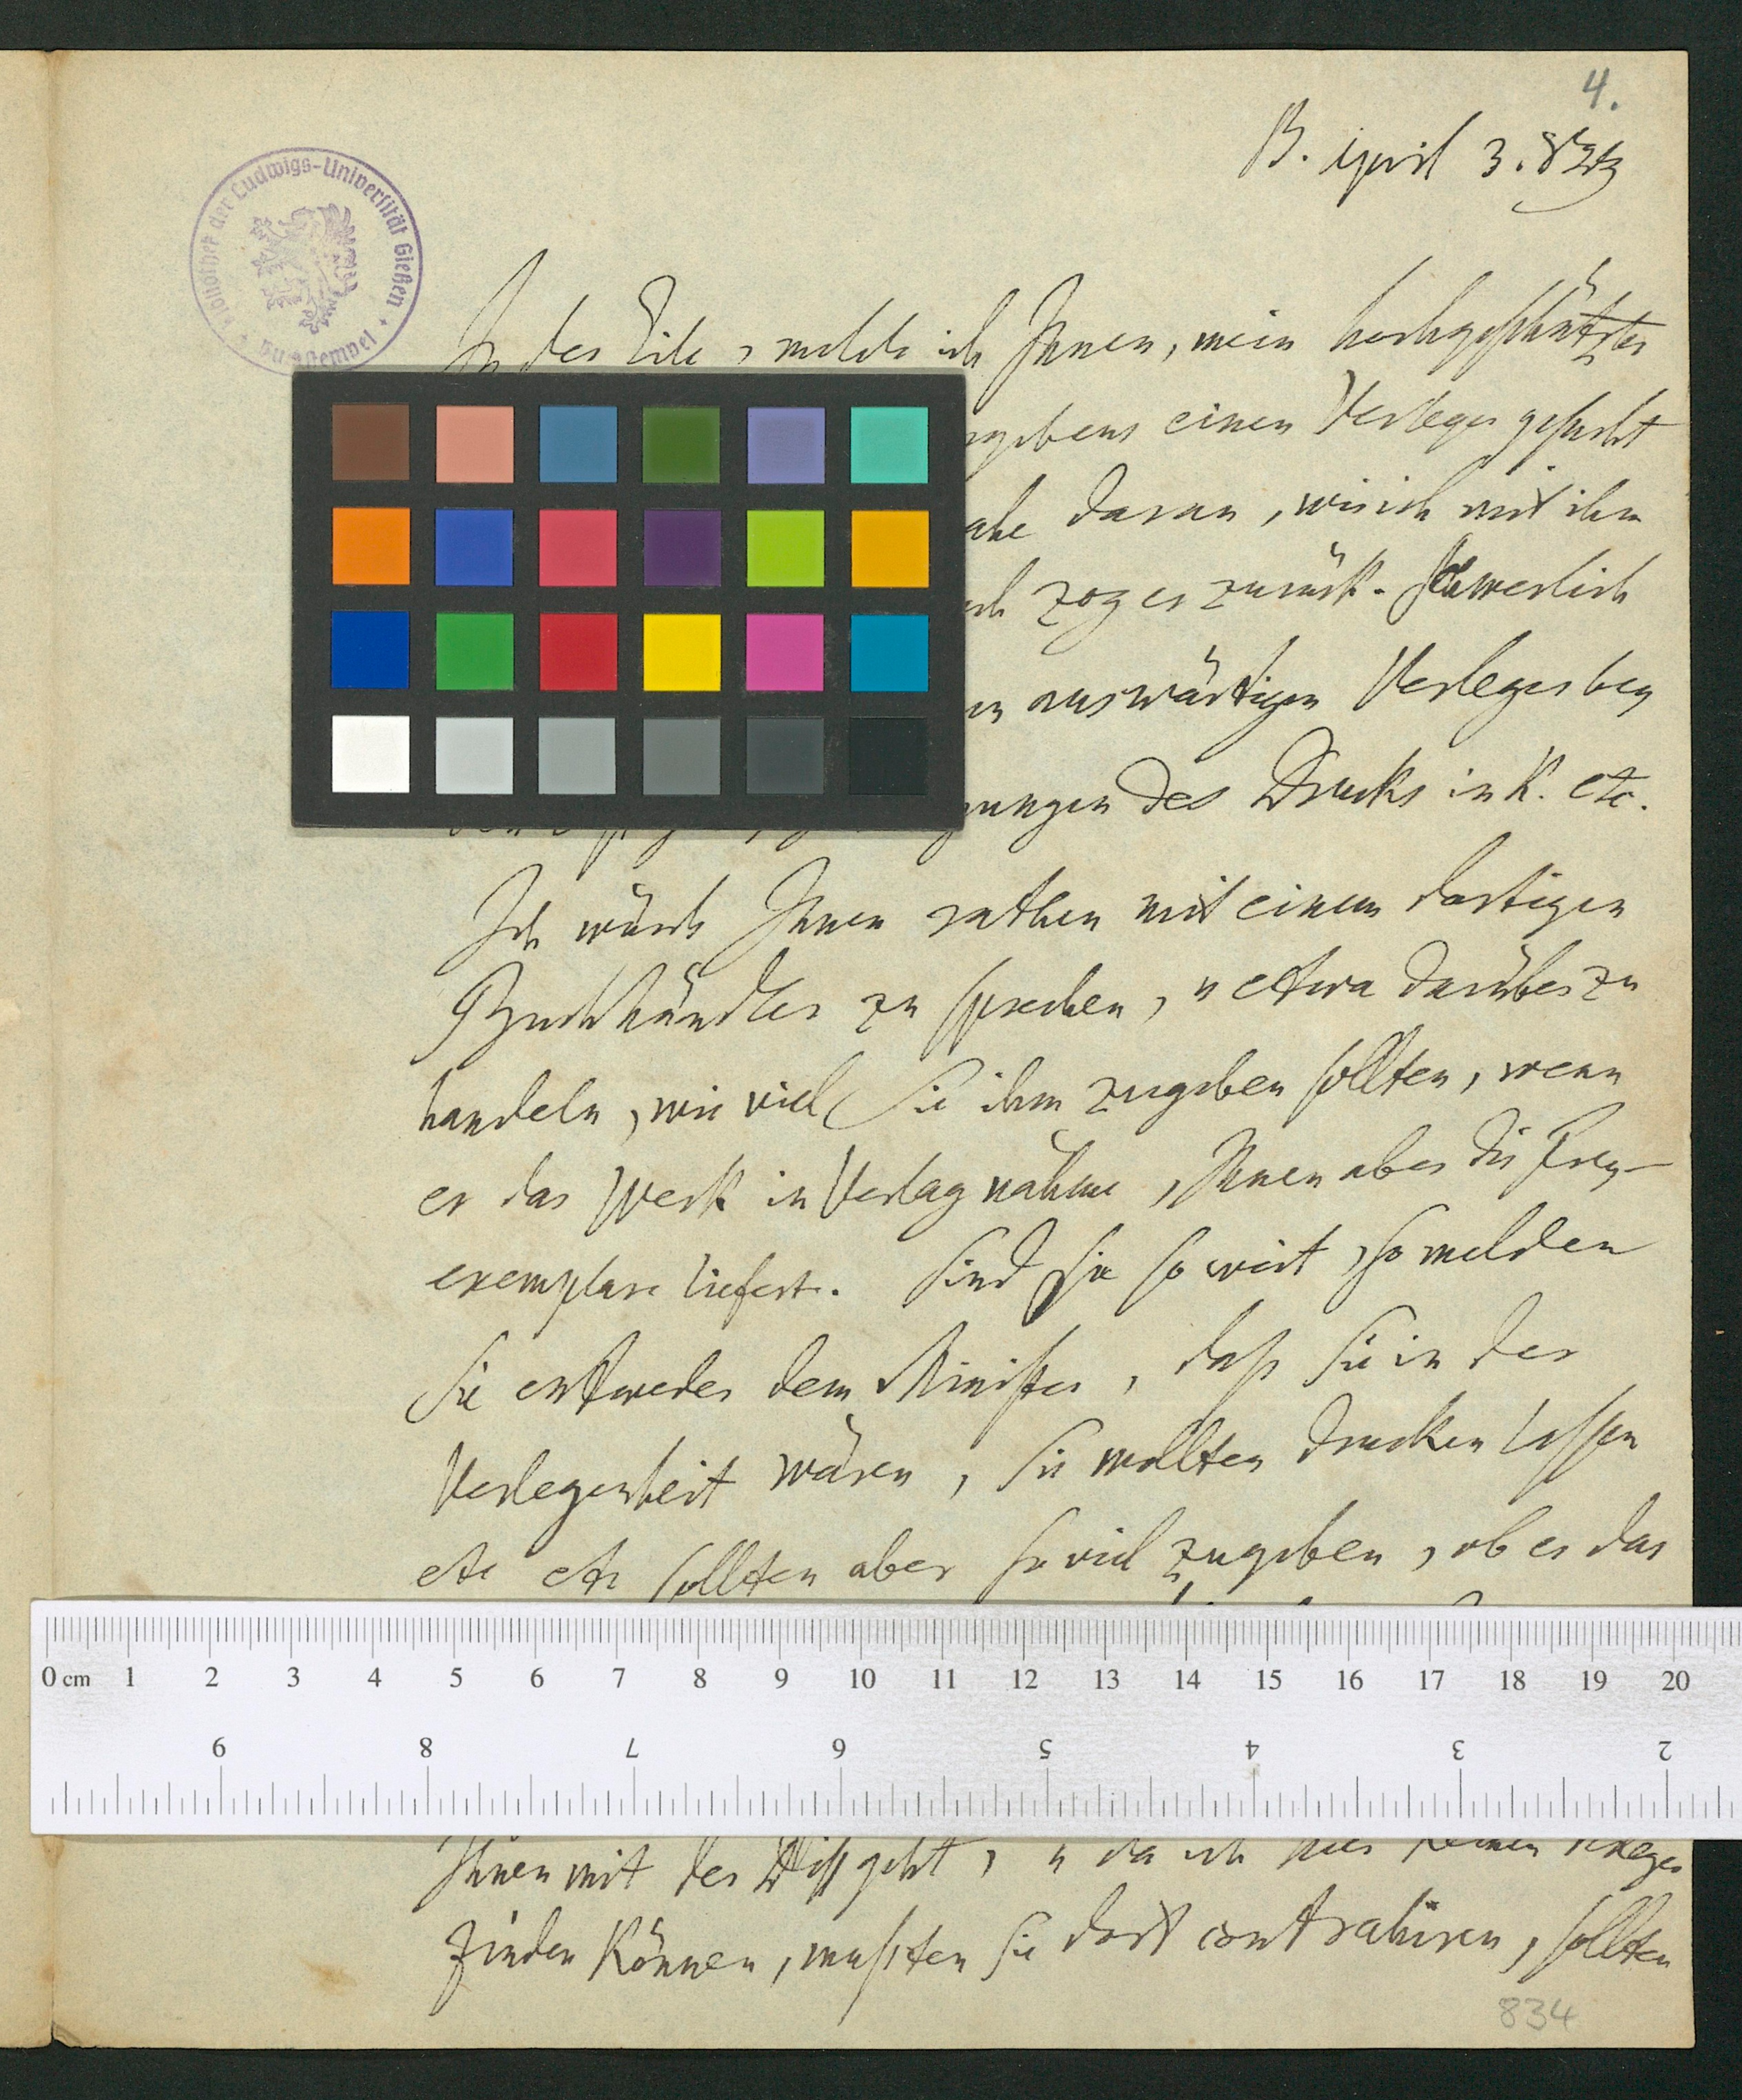 4.
B. April 3. 823
Bibliothek der Ludwigs-Universität Gießen
In der Eile melde ich Ihnen, mein hochgeschätzter
rgebens einen Verleger gesucht
ahe daran, wie ich mit ihm
ch zog er zurück. Schwerlich
en auswärtigen Verleger bey
gungen des Drucks in K. etc.
Ich würde Ihnen rathen mit einem dortigen
Buchhändler zu sprechen, u etwa darüber zu
handeln, wie viel Sie ihm zugeben sollten, wenn
er das Werk in Verlag nähme, Ihnen aber die Frey-
exemplare liefert. Sind Sie so weit, so melden
Sie entweder dem Minister, daß Sie in der
Verlegenheit wären, Sie wollten drucken lassen
etc etc sollten aber so viel zugeben, ob er das
0 cm 1 2 3 4 5 6 7 8 9 10 11 12 13 14 15 16 17 18 19 20
9 8 7 6 5 4 3 2
Ihnen mit der Diss geht, u da ich hier keinen Verleger
finden können, mußten Sie dort contrahiren, sollten
834